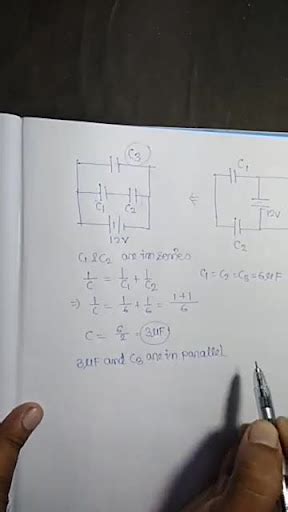 C3
C1 C2
12V
C1
12V
C2
C1 & C2 are in series
1/C = 1/C1 + 1/C2
C1 = C2 = C3 = 6μF
⇒ 1/C = 1/6 + 1/6 = 1+1/6
C = 6/2 = 3μF
3μF and C3 are in parallel